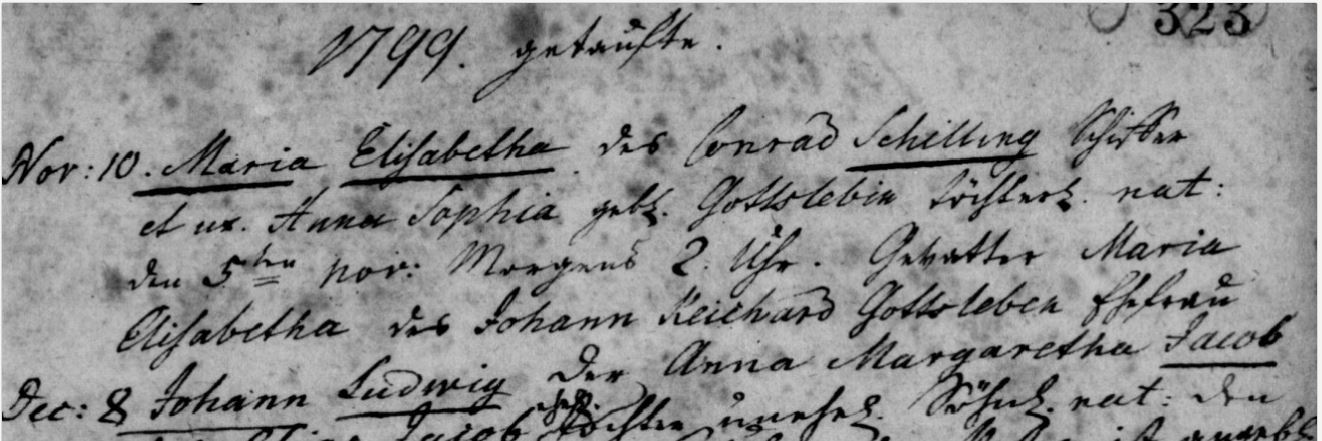 323
1799. getaufte.
Nov: 10. Maria Elisabetha des Conrad Schilling Schiffer
et ux. Anna Sophia gebh. Gottslebin töchterl. nat:
den 5ten Nov: Morgens 2. Uhr. Gevatter Maria
Elisabetha des Johann Reichard Gottsleben Ehefrau
Dec: 8 Johann Ludwig der Anna Margaretha Jacob
Jacob Tochter unehel. Söhnl. nat: den